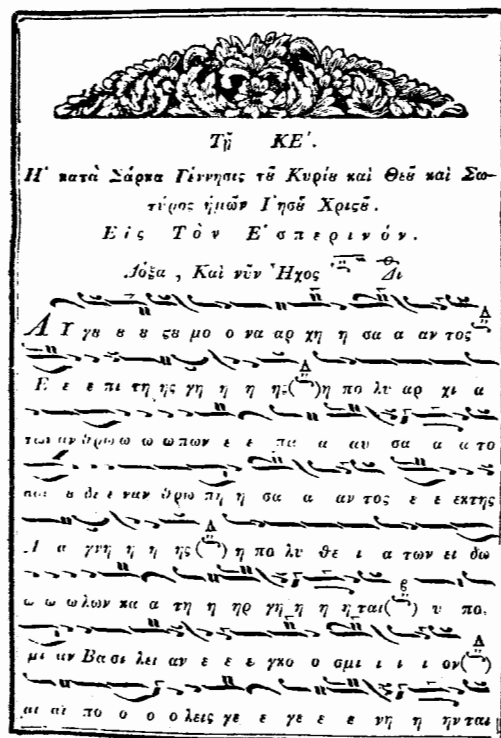 Τῇ ΚΕʹ.
Ἡ κατὰ Σάρκα Γέννησις τȣ̃ Κυρίȣ καὶ Θεȣ̃ καὶ Σω-
τῆρος ἡμῶν Ἰησȣ̃ Χριςȣ̃.
Εἰς Τὸν Ἑσπερινόν.
Δόξα, Καὶ νῦν Ἦχος Δι
Α Υ γȣ ȣ ȣ ςȣ μο ο να αρ χη η σα α αν τος
Ε ε ε πι τη ης γη η η ης( )η πο λυ αρ χι α
των αν θρω ω ω ωπων ε ε πα α αυ σα α α το
ȣ δε ε ναν θρω πη η σα α αν τος ε ε εκτης
Α α γνη η η ης( ) η πο λυ θε ι α των ει δω
ω ω ωλων κα α τη η ηρ γη η η ηται( ) υ πο.
μι αν Βα σι λει αν ε ε ε γκο ο σμι ι ι ι ον( )
αι αι πο ο ο ολεις γε ε γε ε ε νη η ηνται